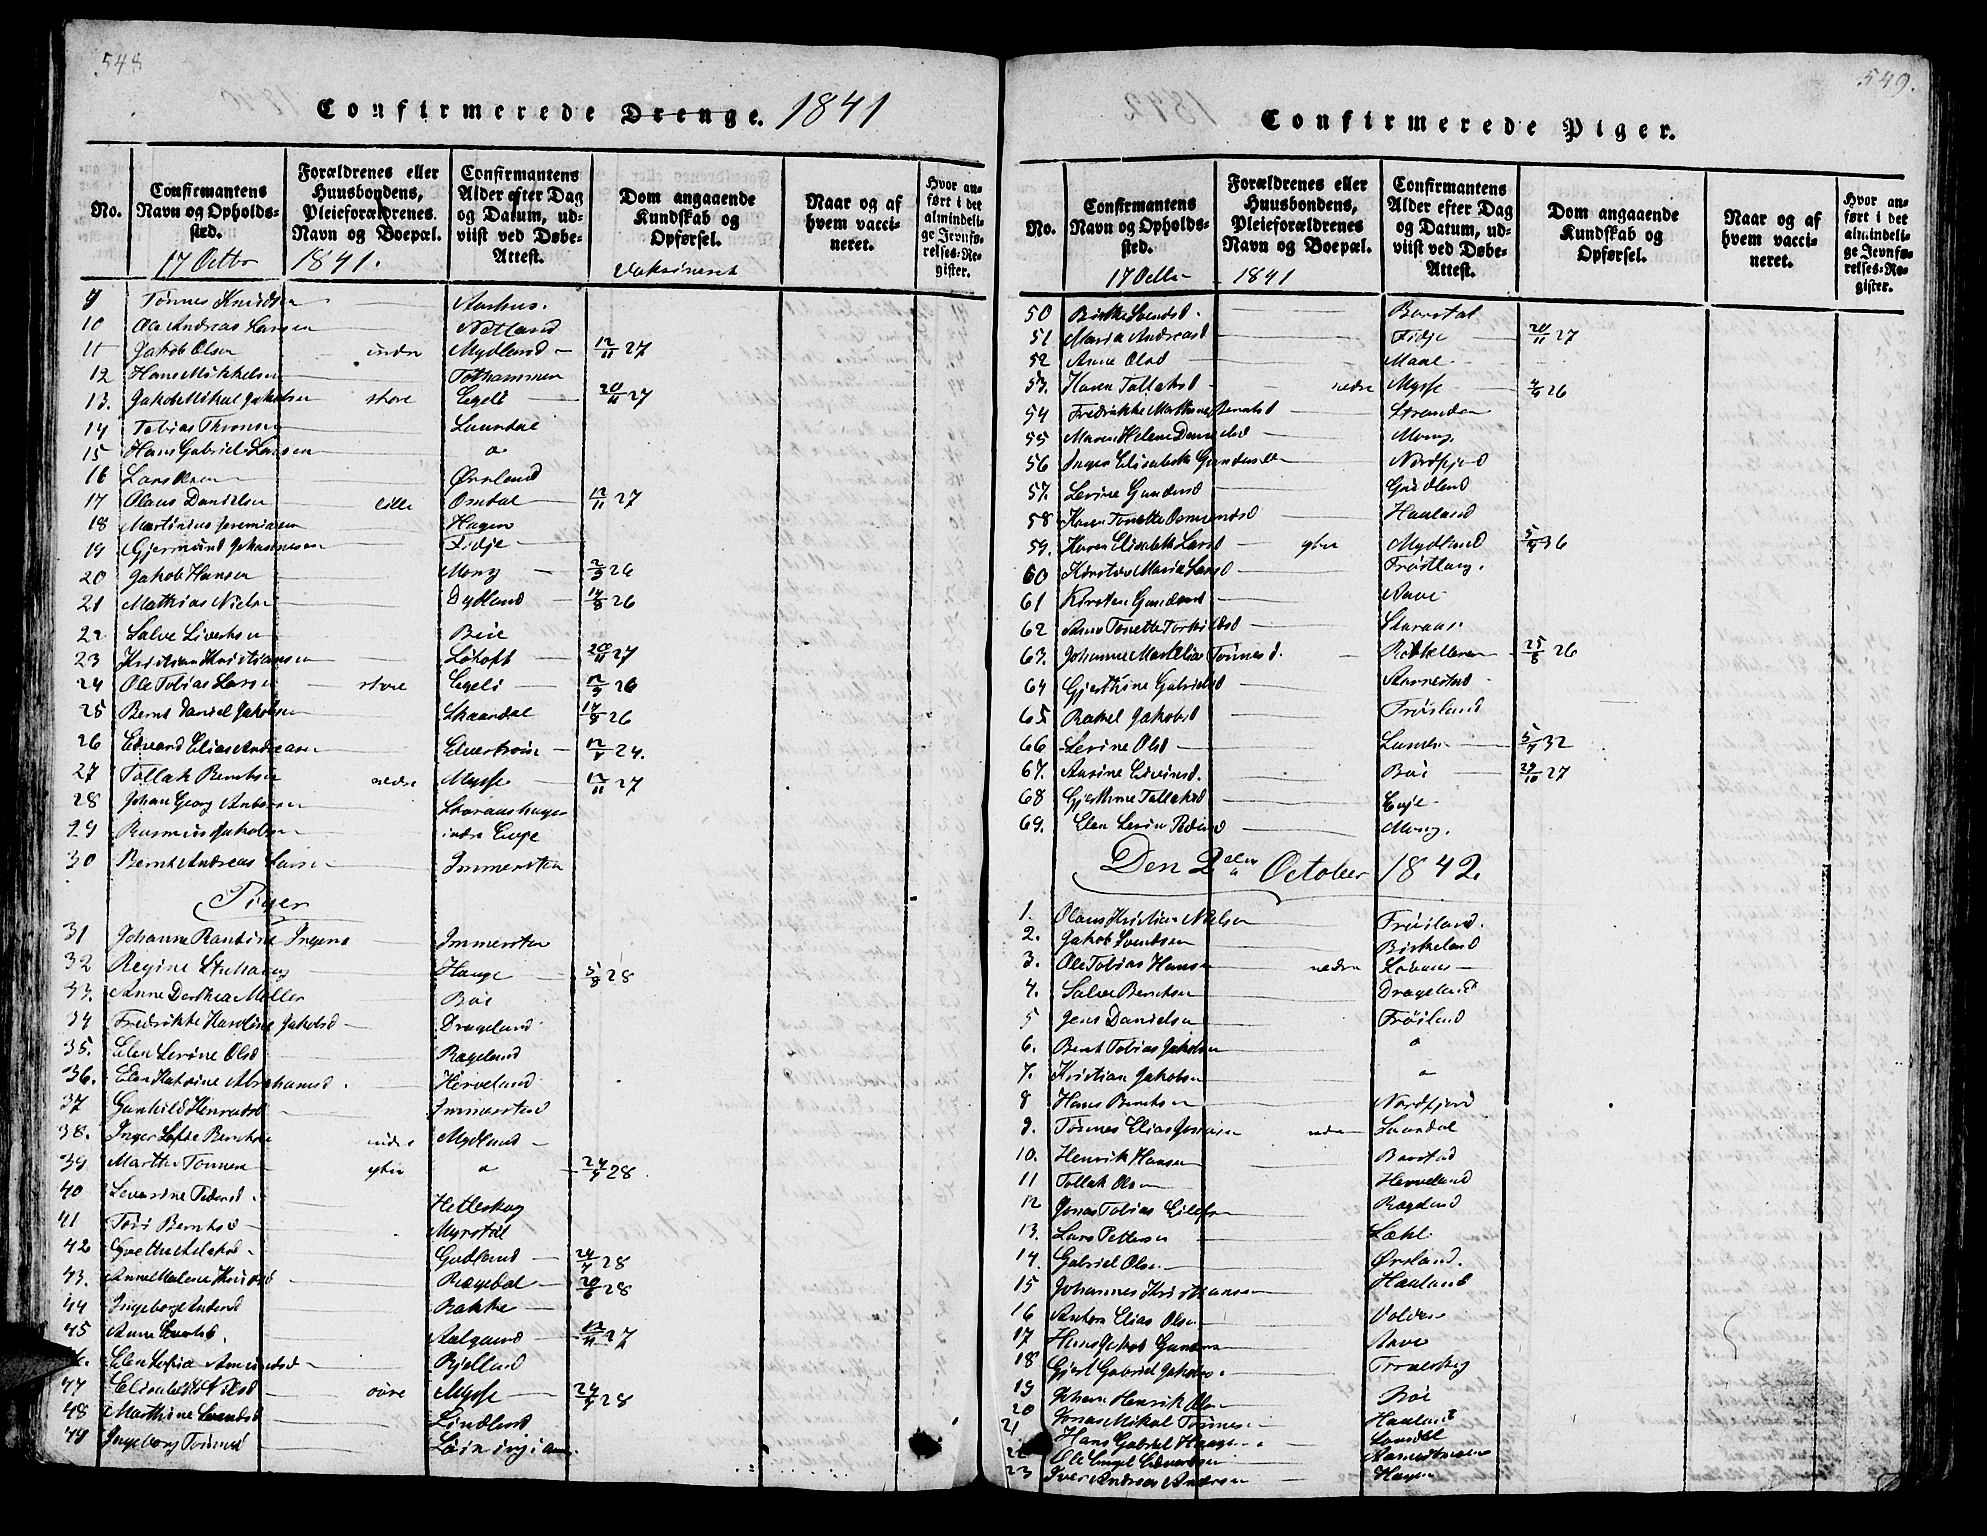 548
Confirmerede Drenge. 1841
No.
Confirmantens Navn og Opholdssted.
Forældrenes eller Huusbondens, Pleieforældrenes Navn og Boepæl.
Confirmantens Alder efter Dag og Datum, udviist ved Døbe-Attest.
Dom angaaende Kundskab og Opførsel.
Maar og af hvem vaccineret.
Hvor anført i det almindelige Jevnførelses-Register.
17 Octbr 1841. Vaksineret
9 Tønnes Knudsen Aarhus.
10 Ole Andreas Larsen Netland
11 Jakob Olsen indre Mydland 12/11 27
12 Hans Mikkelsen Tothammer
13. Jakob Mikal Jakobsen store Egeli 20/11 27
14 Tobias Thronsen Laurdal
15 Hans Gabriel Larsen o
16 Lars Olsen Ørsland
17 Olaus Danielsen lille Omdal 12/11 27
18 Martinius Jeremiasen Hagen
19 Gjermund Johannesen Fidje
20 Jakob Hansen Mong 2/9 26
21 Mathias Nielsen Dydland 14/8 26
22 Salve Sivertsen Bøie
23 Kristian Kristiansen Løtoft 20/11 27
24 Ole Tobias Larsen store Egeli 12/9 26
25 Bernt Daniel Jakobsen Skaardal 14/9 26
26 Edvard Elias Andreasen Elvestrøm 12/7 24.
27 Tollak Berntsen nedre Mysse 12/11 27
28 Johan Georg Andersen Storaashagen
29 Rasmus Jakobsen indre Eige
30 Bernt Andreas Larsen Immersten
Piger
31 Johanne Rantine Ingens Immersten
32 Regine Stuhaug Hauge 5/8 28
33. Anne Dorthea Møller Bøe
34 Fredrikke Karoline Jakobsd Drageland
35. Elen Serine Olsd Rageland
36. Elen Katrine Abrahamsd. Herveland
37 Gunhild Henriksd Immersten
38. Inger Sofie Berntsen indre Mydland
39 Marthe Tønnesen ytre o 24/7 28
40 Severine Pedersd. Hetleskog
41 Tori Berntsd Myrstøl
42 Grethe Aslaksd Gudland 24/7 28
43. Anne Malene Knudsd Ragedal 20/6 28
44 Ingeborg Andersd Bakke
45 Anne Larsd. Aalgaard 12/11 27
Elen Sofia Amundsd Bjelland
47 Elisabeth Nilsd øvre Mysse 24/7 28
48 Marthine Svendsd Lindland
49 Ingeborg Tønnesd
549.
Confirmerede Piger.
No.
Confirmantens Navn og Opholdssted.
Forældrenes eller Huusbondens, Pleieforældrenes Navn og Boepæl.
Confirmantens Alder efter Dag og Datum, udviist ved Døbe-Attest.
Dom angaaende Kundskab og Opførsel.
Maar og af hvem vaccineret.
Hvor anført i det almindelige Jevnførelses-Register.
17 Octbr 1841
50 Birthe Svendsd. Barstad
51 Maria Andreasd Fidje 20/11 27
52 Anne Olsd Maal
53. Karen Tollaksd nedre Mysse 4/9 26
54 Fredrikke Marthine Berntsd Stranden
55 Maren Helene Danielsd Mong.
56 Inger Elisabeth Gundersen Nordfjord
57. Serine Gundersd Gudland
58 Karen Tonette Osmundsd Haaland
59. Karen Elisabeth Larsd ytre Mydland 5/7 36
60 Kirstine Maria Larsd Frøstlang.
61 Kirsten Gundersd Aave
62 Anne Tonette Torkildsd Storaas.
63. Johanne Mart Elia Tønnesd. 25/8 26
64 Gjerthine Gabrielsd Aarrestad
65 Rakel Jakobsd Frøisland
66 Serine Olsd 5/7 32
67. Aasine Eivinsd. Bøi 29/10 27
68 Gjerthine Tollaksd Eige
69. Elen Serine Pedersd Mong.
Den 2den October 1842.
1. Olaus Kristian Nielsen Frøisland.
2. Jakob Svendsen Birkeland
3. Ole Tobias Hansen nedre
4. Salve Berntsen Drageland
5 Jens Danielsen Frøisland
6. Bernt Tobias Jakobsen o
7. Kristian Jakobsen o
8 Hans Berntsen Nordfjord
9. Tønnes Elias Jonassen nedre Laurdal
10. Henrik Hansen Barstad
11 Tollak Olsen Herveland
12 Jonas Tobias Eilefsen Rageland
13. Lars Pettersen
14. Gabriel Olsen Ørsland.
15 Johannes Kristiansen Haaland
16 Anton Elias Olsen Volden
17 Hans Jakob Gundersen Aave
18 Gjert Gabriel Jakobsen
19 Johan Henrik Olsen Bøe
20 Jonas Mikal Tønnesen Haaland
21 Hans Gabriel Haagensen Laurdal
Ole Engel Edvardsen
23 Iver Andreas Andersen Hagen